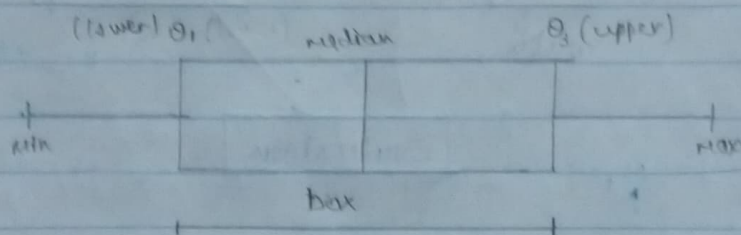 (lower) Q₁ median Q₃ (upper)
Min Max
box